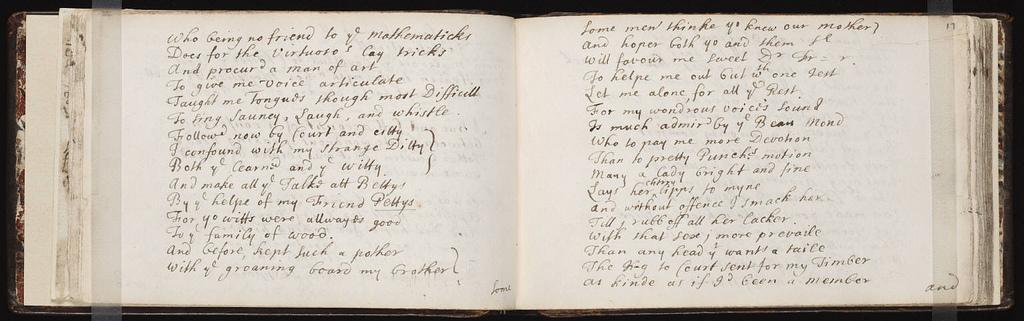 Who being no friend to yᵉ mathematicks
Does for the Virtuoso's lay tricks
And procur'd a man of art
To give me voice articulate
Taught me Tongues though most Difficult
To sing, Sauney, Laugh, and whistle.
Follow'd now by Court and citty
I confound with my strange Ditty
Both yᵉ learn'd and yᵉ witty
And make all yᵉ Talke att Bettys
By yᵉ helpe of my Friend Pettys
For yo witts were allwayes good
To yᵉ family of wood.
And before, kept such a pother
With yᵉ groaning board my Brother
Some
17
Some men thinke yo knew our mother
And hopes both yo and them
Will favour me sweet Dr
To helpe me out but wth one Jest
Let me alone, for all yᵉ Rest.
For my wondrous voices sound
Is much admir'd by yᵉ Beau Mond
Who to pay me more Devotion
Than to pretty Punch's motion
Many a Lady bright and fine
Lays her cherry lipps to myne
And without offence I smack her
Till I rubb off all her lacker
With that sex I more prevaile
Than any head yᵗ wants a taile
The to Court sent for my Timber
As kinde as if I'd been a member
and